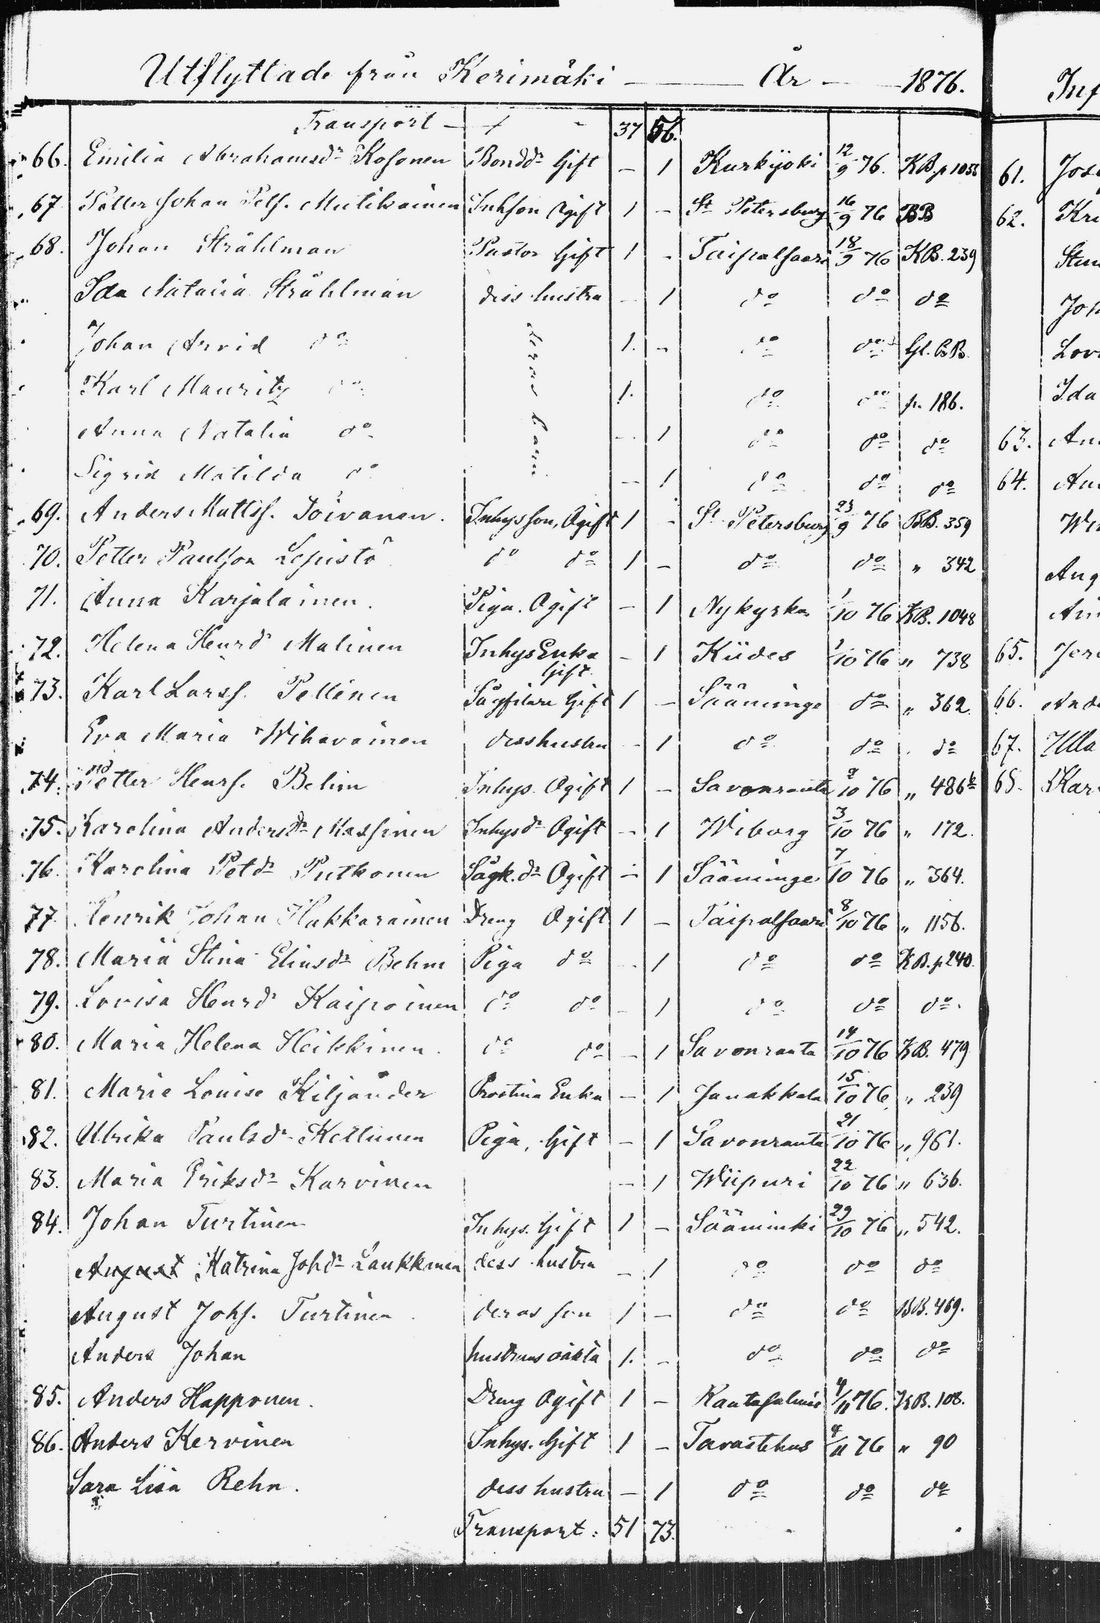 Utflyttade från Kerimäki — År — 1876.
Transport — 37 56.
66. Emilia Abrahamsdr Kosonen Bondedr Gift — 1 Kurkijoki 12/9 76. KB. p 1056
67. Petter Johan Pets. Inhson Ogift 1 — St Petersburg 16/9 76 BB
68. Johan Stråhlman Pastor Gift 1 — Taipalsaari 18/9 76 KB. 239
Ida Natalia Stråhlman dess hustru — 1 do do do
Johan Arvid do deras barn 1. — do do Gl. BB.
Karl Mauritz do 1. do do p. 186.
Anna Natalia do — 1 do do do
Sigrid Matilda do — 1 do do do
69. Anders Matts. Toivanen. Inhysson, Ogift 1 — St Petersburg 23/9 76 BB. 359
70. Petter Paulson Lepistö do do 1 — do do " 342
71. Anna Karjalainen. Piga. Ogift — 1 Nykyrka 1/10 76 KB. 1048
72. Helena Henrdr Malinen Inhys Enka Gift. — 1 Kiides 1/10 76 " 738
73. Karl Larss. Pellinen Sågfilare Gift 1 — Sääminge do " 362
Eva Maria Wihavainen dess hustru — 1 do do do
74. Petter Henrs. Behm Inhys. Ogift 1 — Savonranta 2/10 76 " 486
75. Karolina Andersdr Massinen Inhysdr Ogift — 1 Wiborg 3/10 76 " 172.
76. Karolina Petdr Putkonen Sågk. dr Ogift — 1 Sääminge 7/10 76 " 364.
77. Henrik Johan Hakkarainen Dreng Ogift 1 — Taipalsaari 8/10 76 " 1156.
78. Maria Stina Eliasdr Behm Piga do — 1 do do KB. p 240.
79. Lovisa Henrdr Kaipainen do do — 1 do do do.
80. Maria Helena Heikkinen. do do — 1 Savonranta 14/10 76 KB. 479
81. Maria Louise Kiljander Prostina Enka — 1 Janakkala 15/10 76 " 239
82. Ulrika Paulsdr Kettunen Piga, Gift — 1 Savonranta 21/10 76 " 961.
83. Maria Eriksdr Karvinen — 1 Wiipuri 22/10 76 " 636.
84. Johan Turtinen Inhys. Gift 1 — Sääminki 29/10 76 " 542.
August Katrina Johdr Laukkanen dess hustru — 1 do do do
August Johs. Turtinen deras son 1 — do do BB. 469.
Anders Johan hustruns oäkta 1. — do do do
85. Anders Happonen. Dreng Ogift 1 — Rantasalmi 4/11 76. KB. 108.
86. Anders Kervinen Inhys. Gift 1 — Tavastehus 4/11 76 " 90
Sara Lisa Rehn. dess hustru — 1 do do do
Transport: 51 73.
Inf
61. Jos
62. Kri
Joh
Lov
Ida
63. An
64. An
Aug
65. Jer
66. And
67. Ulla
68. Kar